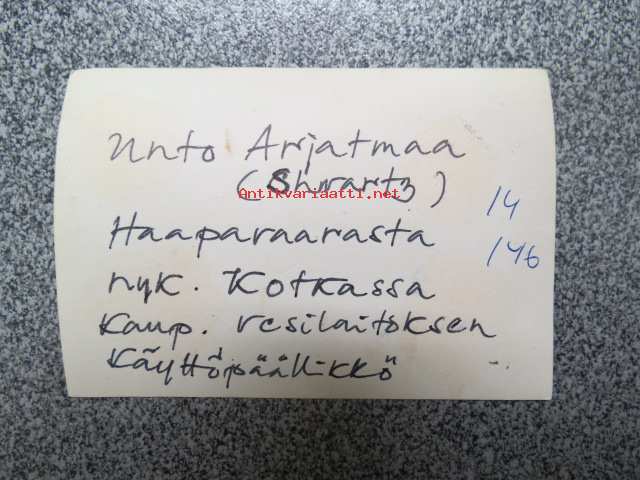 Unto Arjatmaa
(Shwartz)
Antikvariaatti.net
14
Haaparaarasta
146
nyk. Kotkassa
Kaup. vesilaitoksen
Käyttöpäällikkö